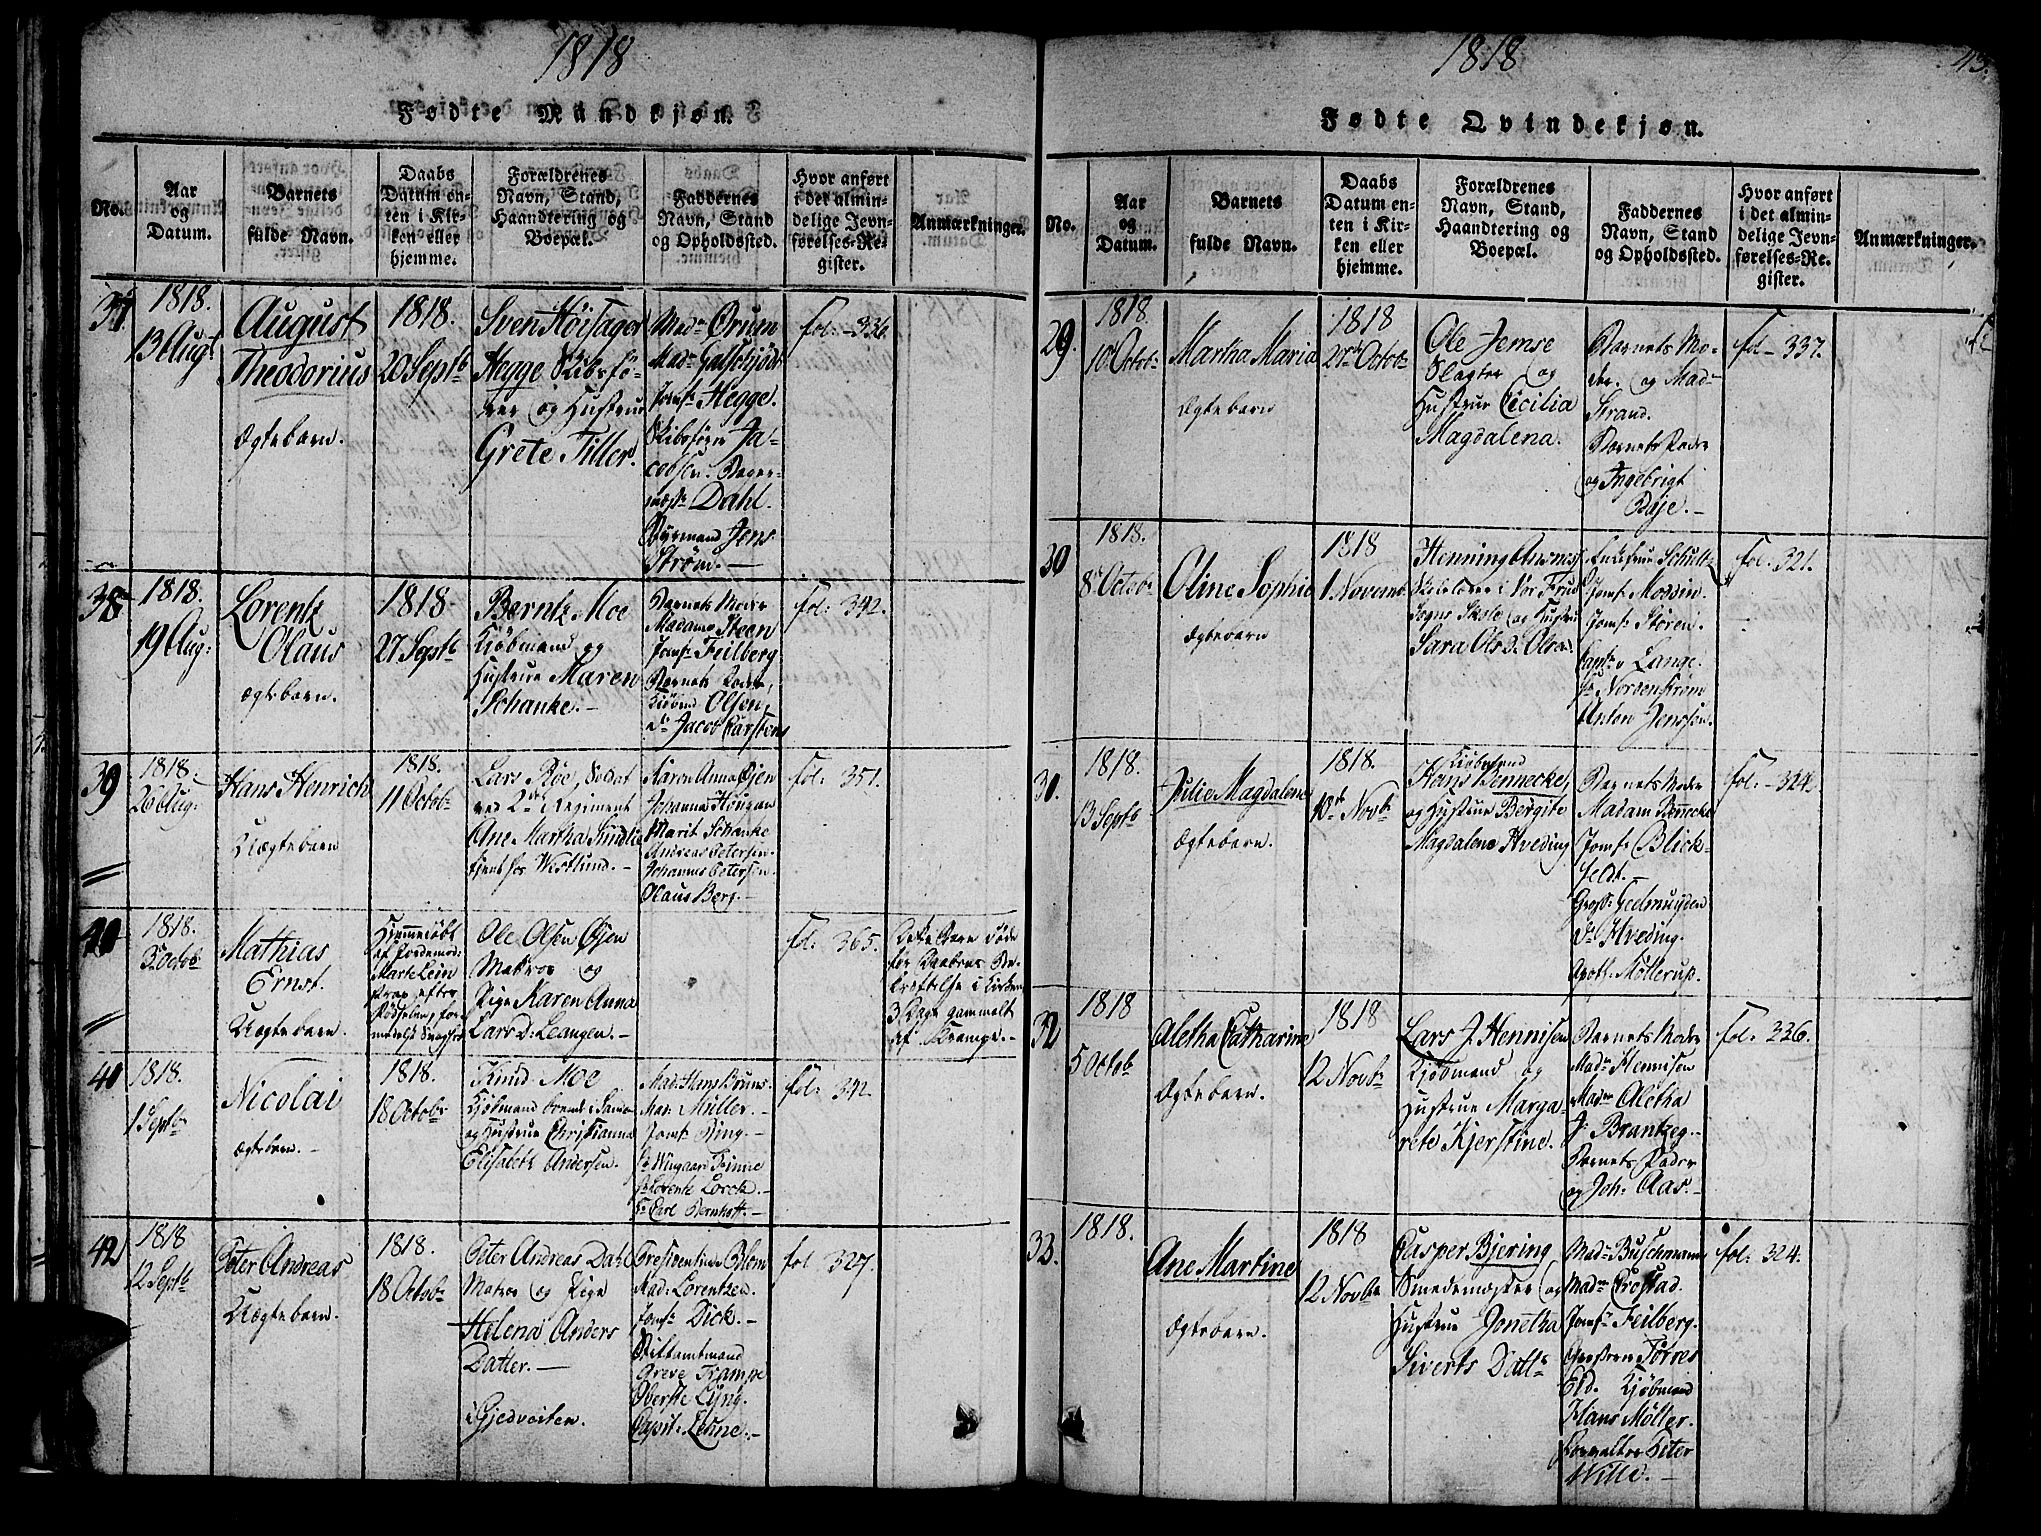 1818
Fødte Mandkjøn.
No.
Aar
og
Datum.
Barnets
fulde Navn.
Daabs
Datum en-
ten i Kir-
ken eller
hjemme.
Forældrenes
Navn, Stand,
Haandtering og
Boepæl.
Faddernes
Navn, Stand
og Opholdssted.
Hvor anført
i det almin-
delige Jevn-
førelses-Re-
gister.
Anmærkninger.
37
1818.
13 Augt
August
Theodorius
Ægtebarn.
1818.
20 Septb
Sven Höisager
Hegge Skibsfö-
rer og Hustrue
Grete Tiller.
Madm Ørnen
Jomf: Hegge.
Skibsförer Ja-
cobsen. Bager-
mestr Dahl.
Styrmand Jens
Ström.
fol: 336
38
1818.
19 Aug:
Lorentz
Olaus
ægtebarn.
1818
27 Septb
Berntz Moe
Kjöbmand og
Hustrue Maren
Schanke.
Barnets Moder
Madame Steen
Jomf: Feilberg
Barnets Fader,
Kiöbmd Olsen,
do Jacob Carstens
fol: 342.
39
1818.
26 Aug:
Hans Henrich
Uægtebarn
1818.
11 Octobr
Lars Röe, Soldat
ved 2det Regiment
Ane Martha
tient hos Westlund.
Karen Anna Öien
Johanna Hougan
Marit Schanke
Andreas Petersen
Johannes Petersen
Olaus Berg.
Fol: 351.
40
1818.
3 Octob
Mathias
Ernst.
Uægtebarn.
Hjemmedöbt
af Jordemod:
Mad: Lein
strax efter
Födselen, for-
medelst Svaghed
Ole Olsen Öjen
Matros og
Pige Karen Anna
Lars D. Leangen.
fol: 365.
Dette Barn döde
för Daabens Be-
kræftelse i Kirken
3 Dage gammelt
af Krampe.
41
1818.
1 Septb
Nicolai
ægtebarn.
1818.
18 Octobr
Knud Moe
Kjöbmand
og Hustrue Christianna
Elisabeth Andersen.
Mad: Hans Bruns
Mad: Müller.
Jomf: Bing.
Hr Wingaar Finne
Hr Lorentz Lorck.
Hr Carl Bernhoft.
fol: 342.
42
1818
12 Septb
Peter Andreas
Uægtebarn.
1818.
18 Octobr
Peter Andreas Dahl
Matros og Pige
Helena Anders
Datter.
i Gjedveiten.
Presidentinde Blom
Mad: Lorentzen
Jomf: Dick.
Stiftamtmand
Greve Trampe
Oberste Lyng.
Capit: Lehne.
fol 327.
1818
43.
Fødte Qvindekjøn.
No.
Aar
og
Datum.
Barnets
fulde Navn.
Daabs
Datum en-
ten i Kir-
ken eller
hjemme.
Forældrenes
Navn, Stand,
Haandtering og
Boepæl.
Faddernes
Navn, Stand
og Opholdssted.
Hvor anført
i det almin-
delige Jevn-
førelses-Re-
gister.
Anmærkninger.
29.
1818.
10 Octobr
Martha Maria
Ægtebarn
1818
Octobr
Ole Jemse
Slagter og
Hustrue Cicilia
Magdalena.
Barnets Mo-
der og Mad:
Strand.
Barnets Fader
og Ingebrigt
Böje.
fol 337.
30
1818.
8 Octobr
Oline Sophie
Ægtebarn
1818
1 Novemb
Henning Ansnes
Skolelærer i Vor Frue
Sogns Skole og Hustru
Sara Ols D. Olsen.
Enkefrue Schultz
Jomf: Mossin.
Jomf: Stören.
Capt: v Lange.
Hr Nordenström
Anton Jenssen.
Fol: 321.
31.
1818.
13 Septb
Julie Magdalene
Ægtebarn.
1818.
10de Novb
Kiöbmand
Hans Bennecke,
og Hustrue Bergite
Magdalene Hveding
Barnets Moder
Madam Bennecke
Jomf: Blick-
feldt.
Gros: Geelmuyden
Dr Hveding.
Apoth: Möllerup.
fol: 324.
32
1818
5 Octob
Aletha Catharine
Ægtebarn.
1818
12 Novbr
Lars J. Hennisen
Kjöbmand og
Hustrue Marga-
rete Kjerstine.
Barnets Moder
Madm Hennisen
Madm Aletha
Jr Brantzeg.
Barnets Fader
og Joh: Aas.
fol: 336.
33.
1818.
Ane Martine
Ægtebarn.
1818
12 Novbr
Casper Bjering
Smedemester og
Hustrue Jonetha
Siverts Datr
Madm Buschmann
Madm Crostad.
Jomf: Feilberg.
Torres
Eid. Kjöbmand
Hans Möller.
Forvalter Peter
Wille.
fol: 324.